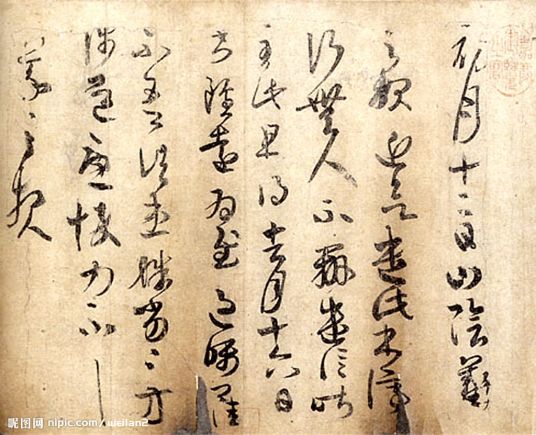 初月十二日山陰羲
之報近欲遣此書停
行無人不辦遣信昨
至此且得去月十六日
書雖遠為慰過囑卿佳
不吾諸患殊劣殊劣方
涉道憂悴力不具
羲之報
昵图网 nipic.com/weilan2